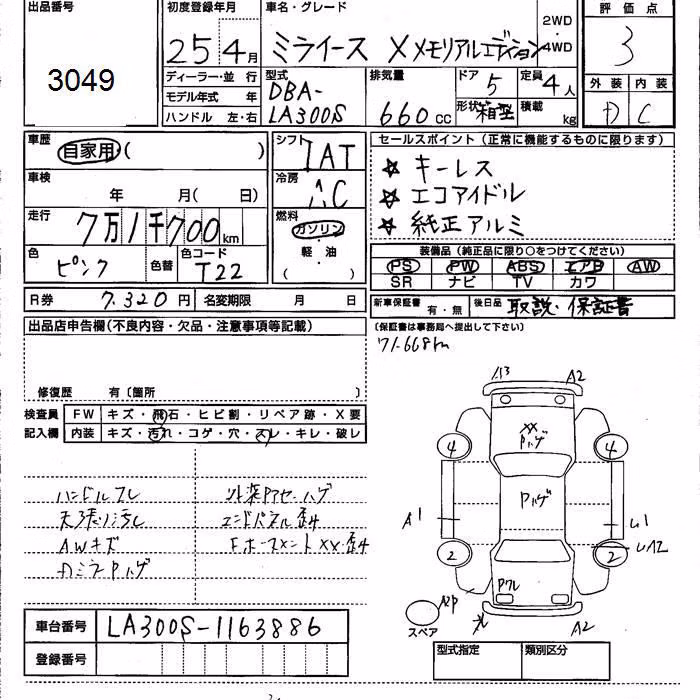 出品番号
3049
初度登録年月
25 4月
車名・グレード
ミライース X メモリアルエディション
2WD
・
4WD
評価点
3
ディーラー・並 行
モデル年式 年
ハンドル 左・右
型式
DBA-
LA300S
排気量
660 cc
ドア
5
定員
4人
形状 箱型
積載
kg
外装 内装
D C
車歴
自家用 ( )
車検
年 月( 日)
走行
7万1千700km
色
ピンク
色替
色コード
T22
シフト
IAT
冷房
AC
燃料
ガソリン
・
軽・油
( )
R券 7,320円 名変期限 月 日
セールスポイント (正常に機能するものに限ります)
☆ キーレス
☆ エコアイドル
☆ 純正アルミ
装備品 (純正品に限り○をつけてください)
PS PW ABS エアB AW
SR ナビ TV カワ
新車保証書 有・無 後日品 取説・保証書
(保証書は事務局へ提出して下さい)
71.668km
出品店申告欄 (不良内容・欠品・注意事項等記載)
修復歴 有 〔箇所 〕
検査員
記入欄
FW キズ・飛石・ヒビ割・リペア跡・X要
内装 キズ・汚れ・コゲ・穴・スレ・キレ・破レ
ハンドルスレ
天張り汚レ
AWキズ
Dミラー Pハゲ
外装Pアセ・ハゲ
エンドパネル歪み
Fホースメント XX・歪み
A3 A2
XX
Pハゲ
4 4
Pハゲ
A1
2 2
Pワレ
スペア
A2
車台番号 LA300S-1163886
登録番号
型式指定 類別区分